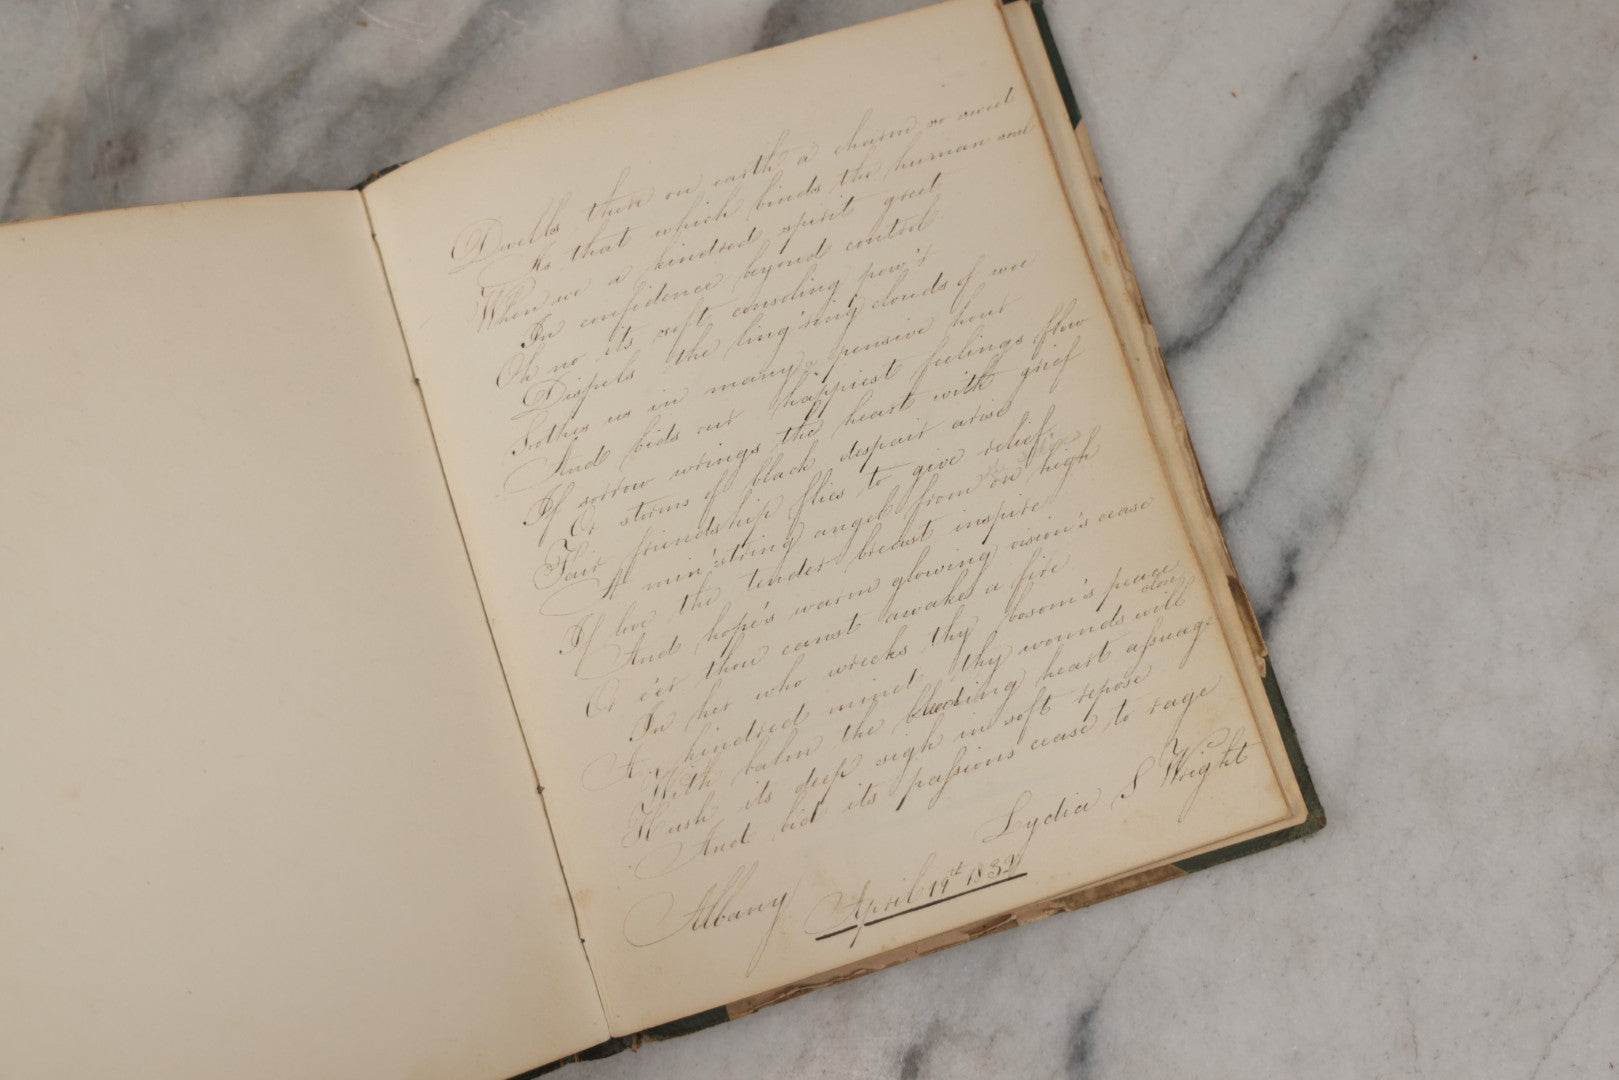 Dwells there on earth a charm so sweet
As that which binds the human soul
When we a kindred spirit greet
In confidence beyond control
Oh no its soft consoling pow'r
Dispels the ling'ring clouds of woe
Sothes us in many a pensive hour
And bids our happiest feelings flow
If sorrow wrings the heart with grief
Or storms of black despair arise
Fair friendship flies to give relief
A min'string angel from on high
If love the tender breast inspire
And hope's warm glowing vision's cease
Or e'er thou canst awake a fire
In her who wrecks thy bosom's peace
A kindred mind thy wounds will close
With balm the bleeding heart assuage
Hush its deep sigh in soft repose
And bid its passions cease to rage
Lydia S Wright
Albany April 19th 1832